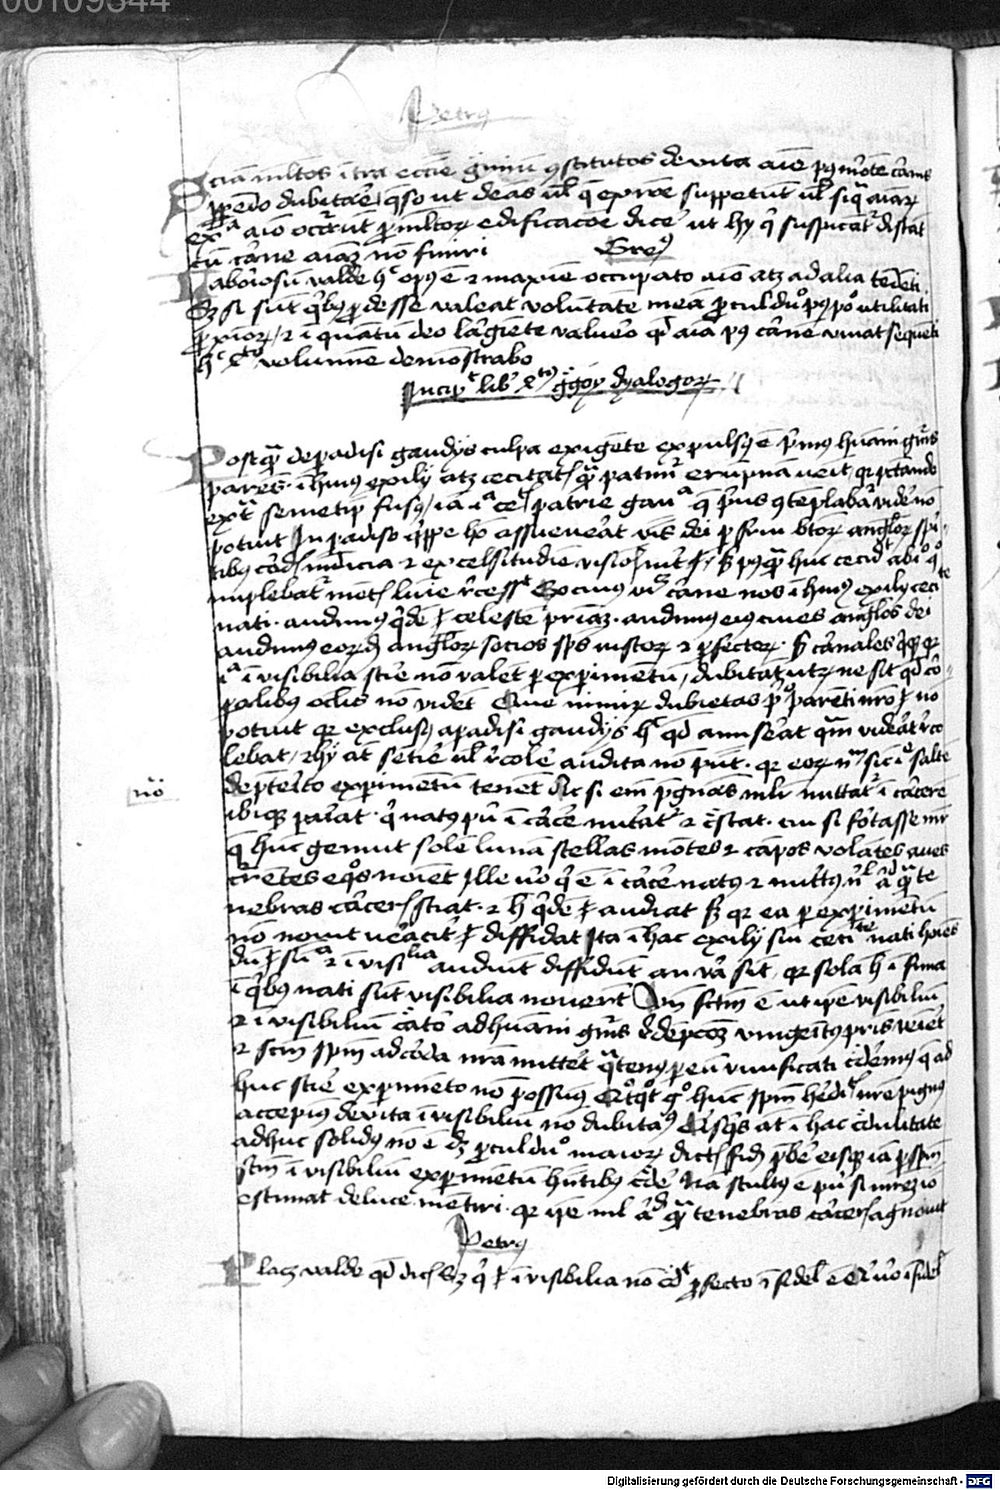 00109344
Petrus
Scia multos intra eccie gremiu constitutos de vita aie post morte carnis
perpendo dubitare queso ut debeas vel que ex roe suppetunt vel siqua aiaru
exa aio occurrunt pro multoru edificacoe dice ut hy qui suspicant discant
cu carne aiam no finiri Gregus
Laboriosu valde hoc opus e et maxime occupato aio atque ad alia tendeti
Sed si sunt quibus prodesse valeat voluntate mea procul dubio postpono utilitati
proximoru et in quantu deo largiete valuero quod aia post carne vivat sequeti
hoc quarto volumine demonstrabo
Incipit liber quartus gregorii dyalogoru
Postquam de paradisi gaudys culpa exigente expulsus e primus humani generis
parens in huius exily atque cecitatis qua patimur erupna venit quia peccando
extra semetipm fusus iam illa celestis patrie gaudia que prius contemplabatur videre no
potuit In paradiso quippe homo assueverat verbis dei perfrui btoru angeloru spi
ritibus cordis mundicia et excelsitudine visionis interesse sed postquam huc cecidit ab illo quo
implebatur mentis lumine recessit Ex cuius videlicet carne nos in huius exily ceci te
nati audimus quide esse celeste priam audimus eius cives angelos dei
audimus eorumde angeloru socios sps iustoru et perfectoru sed carnales quique quia
illa invisibilia scire no valent per experimentu dubitant utrum ne sit quod cor
poralibus oclis no vident Que nimirum dubietas primo parenti nro esse no
potuit quia exclusus a paradisi gaudys hoc quod amiserat quia viderat reco
lebat hy aut sentire vel recolere audita no possunt quia eoru nullum sicut ille saltem
de preterito experimentum tenent Ac si enim pregnans mulier mittatur in carcere
no
ibique pariat qui natus puer in carcere nutriatur et crescat cui si fortasse mater
que hunc genuit sole luna stellas montes et campos volantes aves
currentes equos nominet Ille vero qui e in carcere natus et nutritus nil aliud qua te
nebras carceris sciat et hec quide esse audiat sed quia ea per experimentu
no novit veraciter esse diffidat Ita in hac exily sui cecitate nati hoies
dum esse summa et invisibilia audiunt diffidunt an vera sint quia sola hec infima
in quibus nati sunt visibilia noverunt Unde factum e ut ipse visibiliu
et invisibiliu creator ad humani generis redempcoe unigenitus pris veniret
et scm spm ad corda nra mitteret quatenus per eum vivificati crederemus que ad
huc scire experimento no possumus Quotquot ergo hunc spm hereditatis nre pignus
accepimus de vita invisibiliu no dubitamus Quisquis aut in hac credulitate
adhuc solidus no e debet procul dubio maioru dictis fidem prebere eisque iam per spm
scm invisibiliu experimentum habentibus credere Nam stultus e puer si matrem ideo
estimat de luce mentiri quia ipse nil aliud qua tenebras carceris agnovit
Petrus
Placet valde quod dicis Sed qui esse invisibilia no credit profecto infidelis e Qui vero infidelis
Digitalisierung gefördert durch die Deutsche Forschungsgemeinschaft - DFG